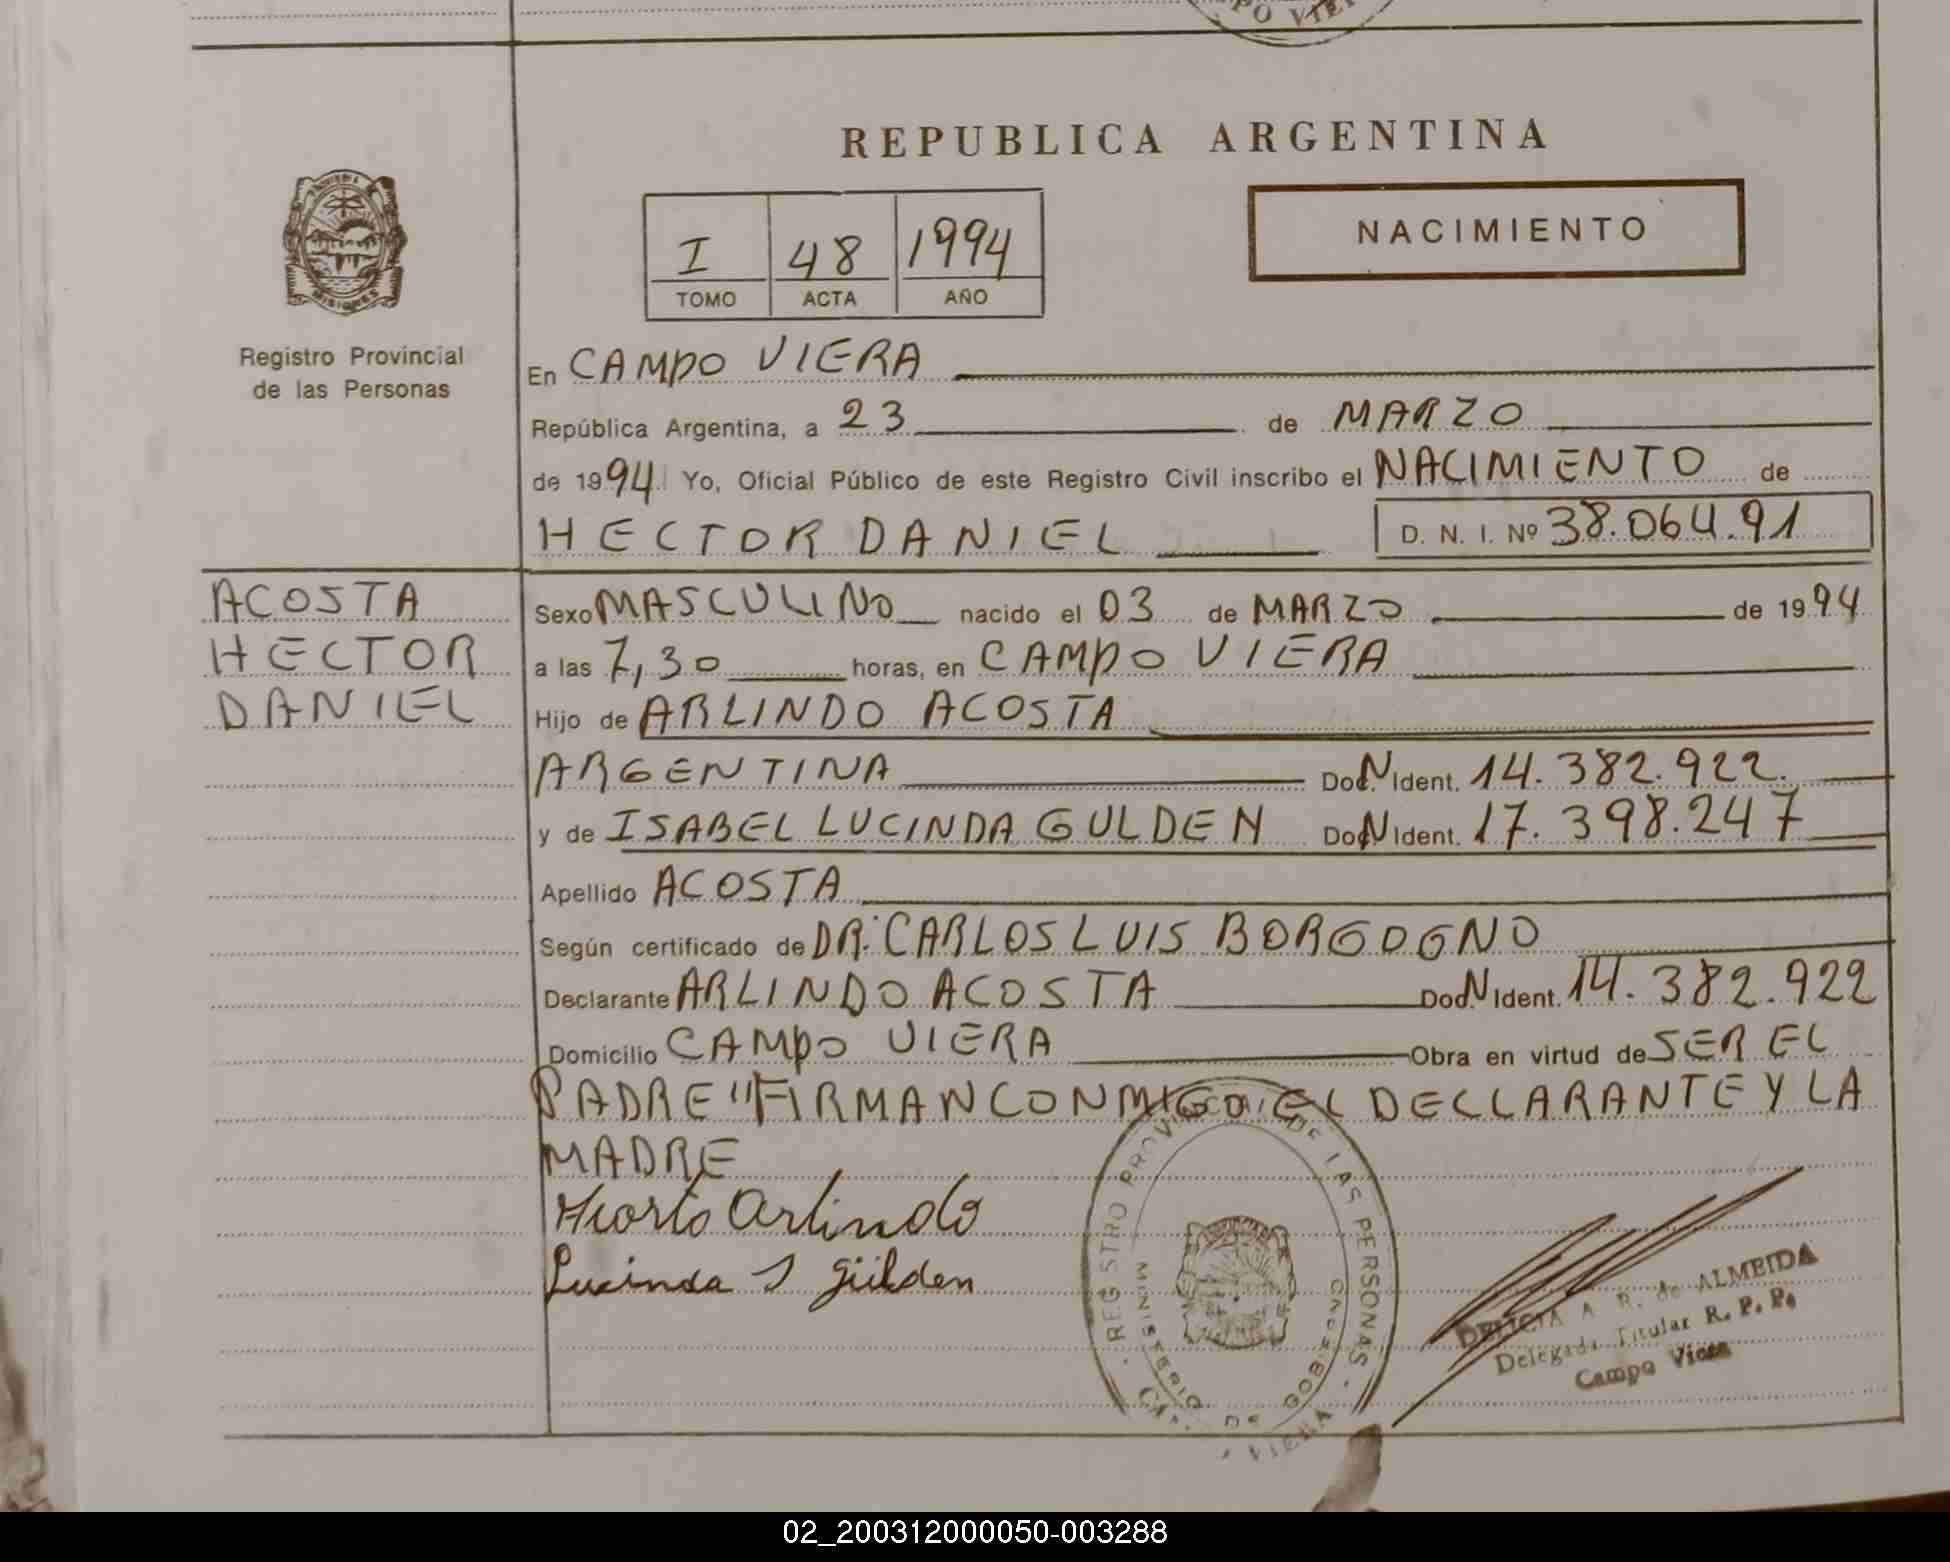 PO VIE
REPUBLICA ARGENTINA
NACIMIENTO
I 48 1994
TOMO ACTA AÑO
MISIONES
Registro Provincial
de las Personas
En CAMPO VIERA
República Argentina, a 23 de MARZO
de 1994 Yo, Oficial Público de este Registro Civil inscribo el NACIMIENTO de
HECTOR DANIEL D. N. I. Nº 38.064.91
ACOSTA
HECTOR
DANIEL
Sexo MASCULINO nacido el 03 de MARZO de 1994
a las 7,30 horas, en CAMPO VIERA
Hijo de ARLINDO ACOSTA
ARGENTINA Doc.N Ident. 14.382.922.
y de ISABEL LUCINDA GULDEN Doc.N Ident. 17.398.247
Apellido ACOSTA
Según certificado de DR. CARLOS LUIS BORGOGNO
Declarante ARLINDO ACOSTA Doc.N Ident. 14.382.922
Domicilio CAMPO VIERA Obra en virtud de SER EL
PADRE "FIRMAN CONMIGO EL DECLARANTE Y LA
MADRE
Arlindo
Lucinda I Gülden
REGISTRO PROVINCIAL DE LAS PERSONAS
MINISTERIO DE GOBIERNO
VIERA
DELICIA A R. de ALMEIDA
Delegada Titular R. P. P.
Campo Viera
02_200312000050-003288